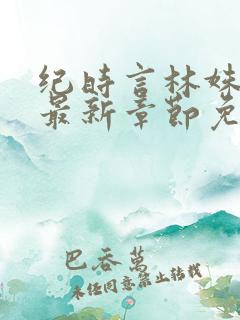 纪时言林姝
最新章节免
巴吞萬
未经同意禁止转载